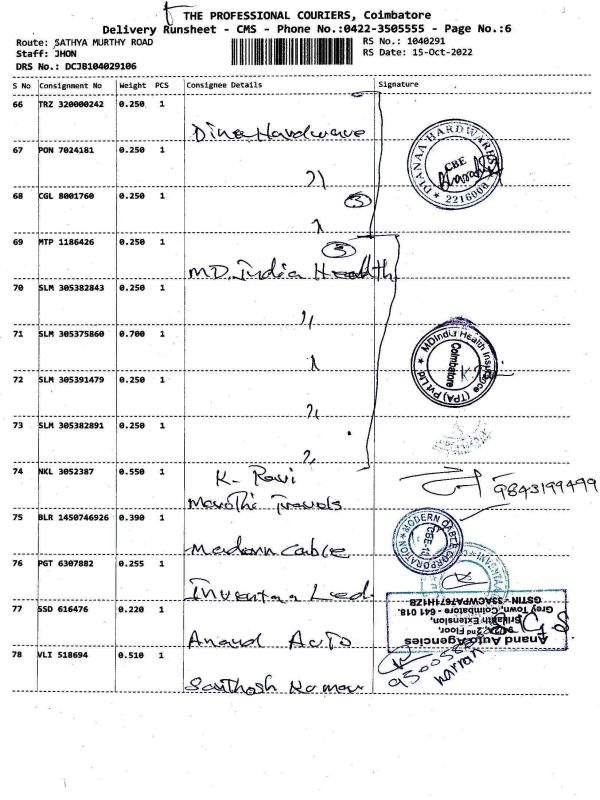 THE PROFESSIONAL COURIERS, Coimbatore
Delivery Runsheet - CMS - Phone No.:0422-3505555 - Page No.:6
Route: SATHYA MURTHY ROAD
RS No.: 1040291
Staff: JHON
RS Date: 15-Oct-2022
DRS No.: DCJB104029106
S No Consignment No Weight PCS Consignee Details Signature
66 TRZ 320000242 0.250 1
Dina Hardware
67 PON 7024181 0.250 1
DIANAA HARDWARES
CBE
2216000
68 CGL 8001760 0.250 1
3
69 MTP 1186426 0.250 1
3
MD. India Health
70 SLM 305382843 0.250 1
71 SLM 305375860 0.700 1
MDIndia Health Insurance (TPA) Pvt Ltd
Coimbatore
72 SLM 305391479 0.250 1
73 SLM 305382891 0.250 1
74 NKL 3052387 0.550 1
K. Ravi
9843199499
Maruthi Travels
75 BLR 1450746926 0.390 1
MODERN CABLE CORPORATION
Modern Cable
76 PGT 6307882 0.255 1
Inventaa Led.
77 SSD 616476 0.220 1
Anand Auto Agencies
2nd Floor,
Srikanth Extension,
Grey Town, Coimbatore - 641 018.
GSTIN - 33ACWPA7671H1ZB
Anand Auto
78 VLI 518694 0.510 1
Santhosh Kumar